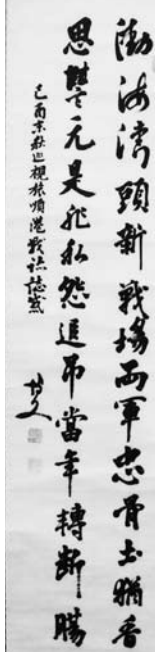 渤海灣頭新戰場兩軍忠骨土猶香
恩讐元是非私怨追弔當年轉斷膓
己酉秋巡視旅順港戰跡誌感
博文